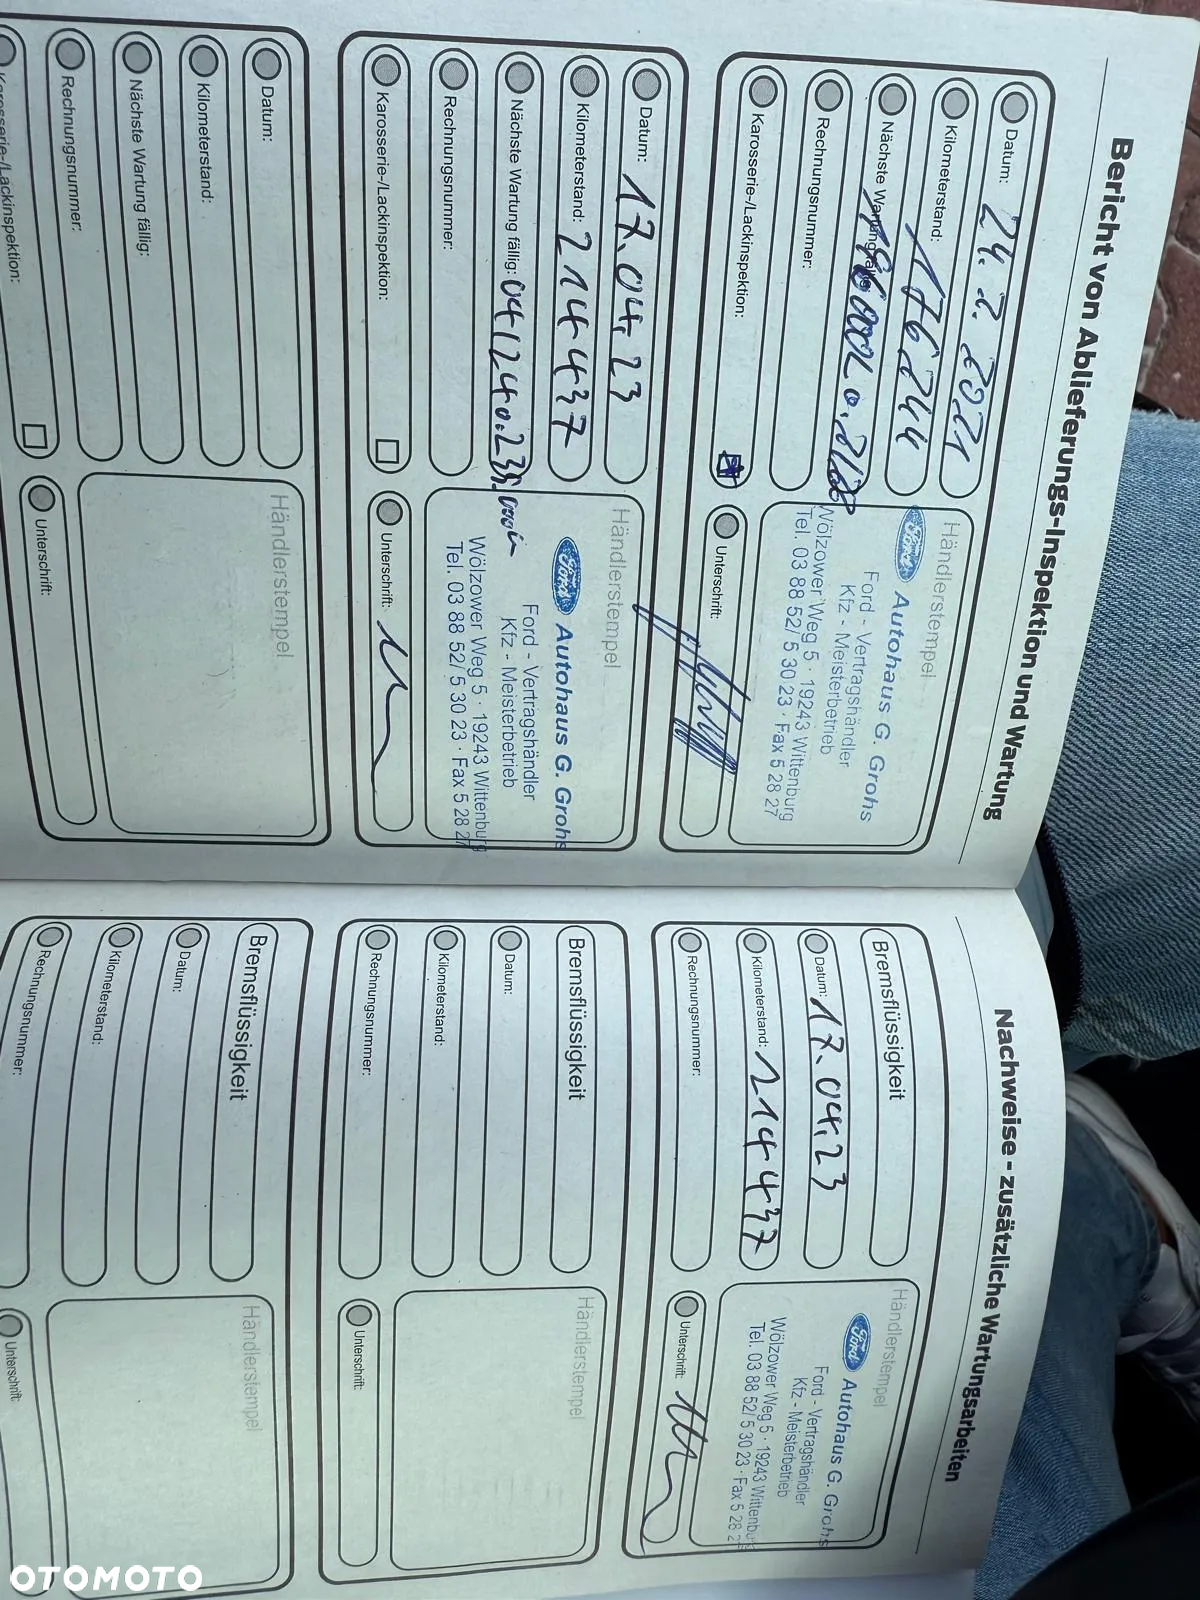 Bericht von Ablieferungs-Inspektion und Wartung
Datum: 24. 2. 2021
Kilometerstand: 176244
Nächste Wartung fällig:
Rechnungsnummer:
Karosserie-/Lackinspektion:
Händlerstempel
Ford Autohaus G. Grohs
Ford - Vertragshändler
Kfz - Meisterbetrieb
Wölzower Weg 5 · 19243 Wittenburg
Tel. 03 88 52/ 5 30 23 · Fax 5 28 27
Unterschrift:
Datum: 17.04.23
Kilometerstand: 214437
Nächste Wartung fällig: 04/24 o. 235.000
Rechnungsnummer:
Karosserie-/Lackinspektion:
Händlerstempel
Ford Autohaus G. Grohs
Ford - Vertragshändler
Kfz - Meisterbetrieb
Wölzower Weg 5 · 19243 Wittenburg
Tel. 03 88 52/ 5 30 23 · Fax 5 28 27
Unterschrift:
Datum:
Kilometerstand:
Nächste Wartung fällig:
Rechnungsnummer:
Karosserie-/Lackinspektion:
Händlerstempel
Unterschrift:
Nachweise - zusätzliche Wartungsarbeiten
Bremsflüssigkeit
Datum: 17.04.23
Kilometerstand: 214437
Rechnungsnummer:
Händlerstempel
Ford Autohaus G. Grohs
Ford - Vertragshändler
Kfz - Meisterbetrieb
Wölzower Weg 5 · 19243 Wittenbu
Tel. 03 88 52/ 5 30 23 · Fax 5 28 2
Unterschrift:
Bremsflüssigkeit
Datum:
Kilometerstand:
Rechnungsnummer:
Händlerstempel
Unterschrift:
Bremsflüssigkeit
Datum:
Kilometerstand:
Rechnungsnummer:
Händlerstempel
Unterschrift:
OTOMOTO